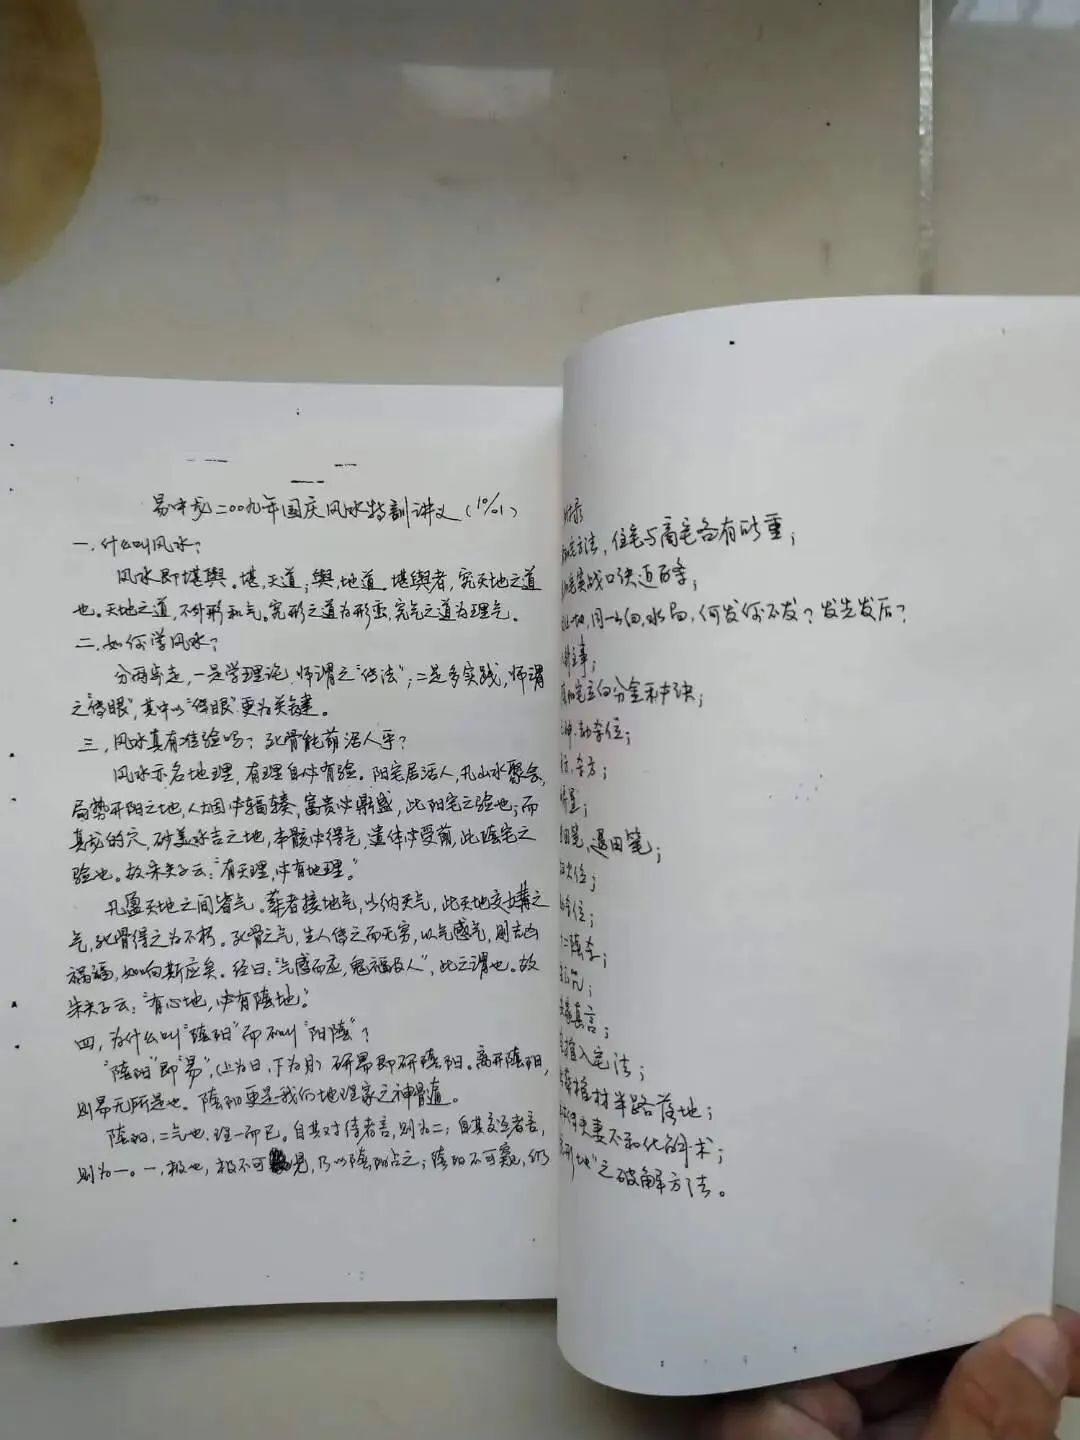 易中龙二00九年国庆风水特训讲义(10/01)
一.什么叫风水?
风水即堪舆。堪,天道;舆,地道。堪舆者,究天地之道
也。天地之道,不外形和气。究形之道为形峦,究气之道为理气。
二.如何学风水?
分两步走,一是学理论,师谓之"传法";二是多实践,师谓
之"传眼",其中以"传眼"更为关键。
三,风水真有准验吗?死骨能荫活人乎?
风水亦名地理,有理自必有验。阳宅居活人,凡山水聚会,
局势开阳之地,人烟必辐辏,富贵必鼎盛,此阳宅之验也;而
真龙的穴,砂美水吉之地,本骸必得气,遗体必受荫,此陰宅之
验也。故朱夫子云:"有天理,必有地理。"
凡盈天地之间皆气。葬者接地气,以纳天气,此天地交媾之
气,死骨得之为不朽。死骨之气,生人传之而无穷,以气感气,则吉凶
祸福,如向斯应矣。经曰:"气感而应,鬼福及人",此之谓也。故
朱夫子云:"有心地,必有陰地。"
四,为什么叫"陰阳"而不叫"阳陰"?
"陰阳"即"易",(上为日,下为月)研易即研陰阳。离开陰阳,
则易无所是也。陰阳更是我们地理家之神骨值。
陰阳,二气也,理一而已。自其对待者言,则为二;自其交运者言,
则为一。一,极也,极不可見,乃以陰阳占之;陰阳不可窥,仍
附录
方法,住宅与商宅各有所重;
实战口诀近百条;
地,同一山向,水局,何发何不发?发先发后?
主事;
阳宅立向分金秘诀;
神.劫煞位;
煞方;
星;
田笔,退田笔;
位;
位;
陰煞;
真言;
入宅法;
棺材半路落地;
夫妻不和化的术;
地"之破解方法。